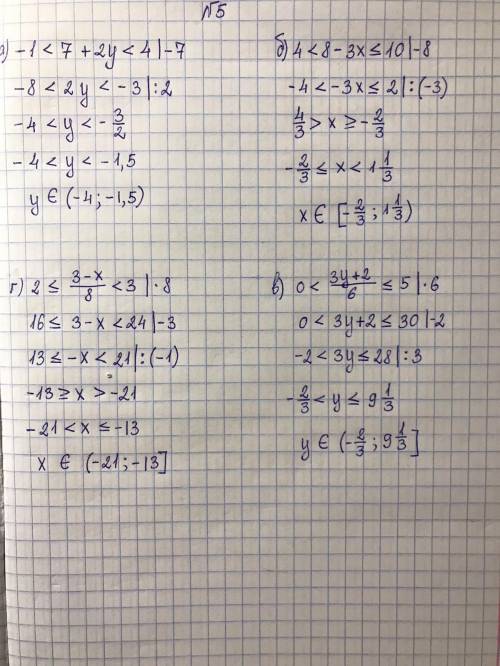 №5
а) -1 < 7 + 2y < 4 |-7
-8 < 2y < -3 |:2
-4 < y < -3/2
-4 < y < -1,5
y ∈ (-4; -1,5)
б) 4 < 8 - 3x ≤ 10 |-8
-4 < -3x ≤ 2 |:(-3)
4/3 > x ≥ -2/3
-2/3 ≤ x < 1 1/3
x ∈ [-2/3; 1 1/3)
г) 2 ≤ (3-x)/8 < 3 |·8
16 ≤ 3 - x < 24 |-3
13 ≤ -x < 21 |:(-1)
-13 ≥ x > -21
-21 < x ≤ -13
x ∈ (-21; -13]
в) 0 < (3y+2)/6 ≤ 5 |·6
0 < 3y+2 ≤ 30 |-2
-2 < 3y ≤ 28 |:3
-2/3 < y ≤ 9 1/3
y ∈ (-2/3; 9 1/3]